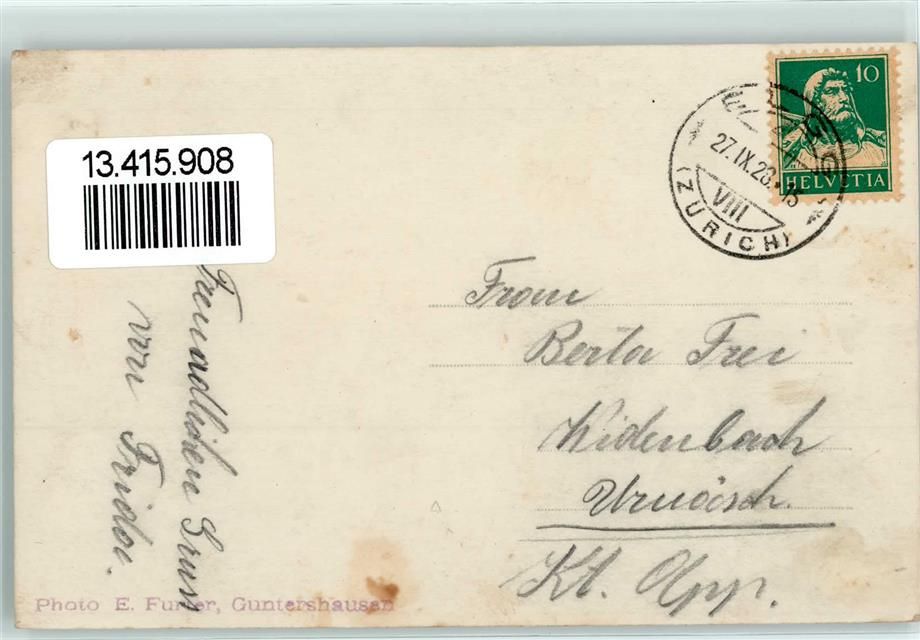 13.415.908
10
HELVETIA
27.IX.23.-15
VIII
(ZÜRICH)
Frau
Berta Frei
Widenbach
Urnäsch.
Kt. App.
Freundlichen Gruss
von Frida.
Photo E. Furter, Guntershausen